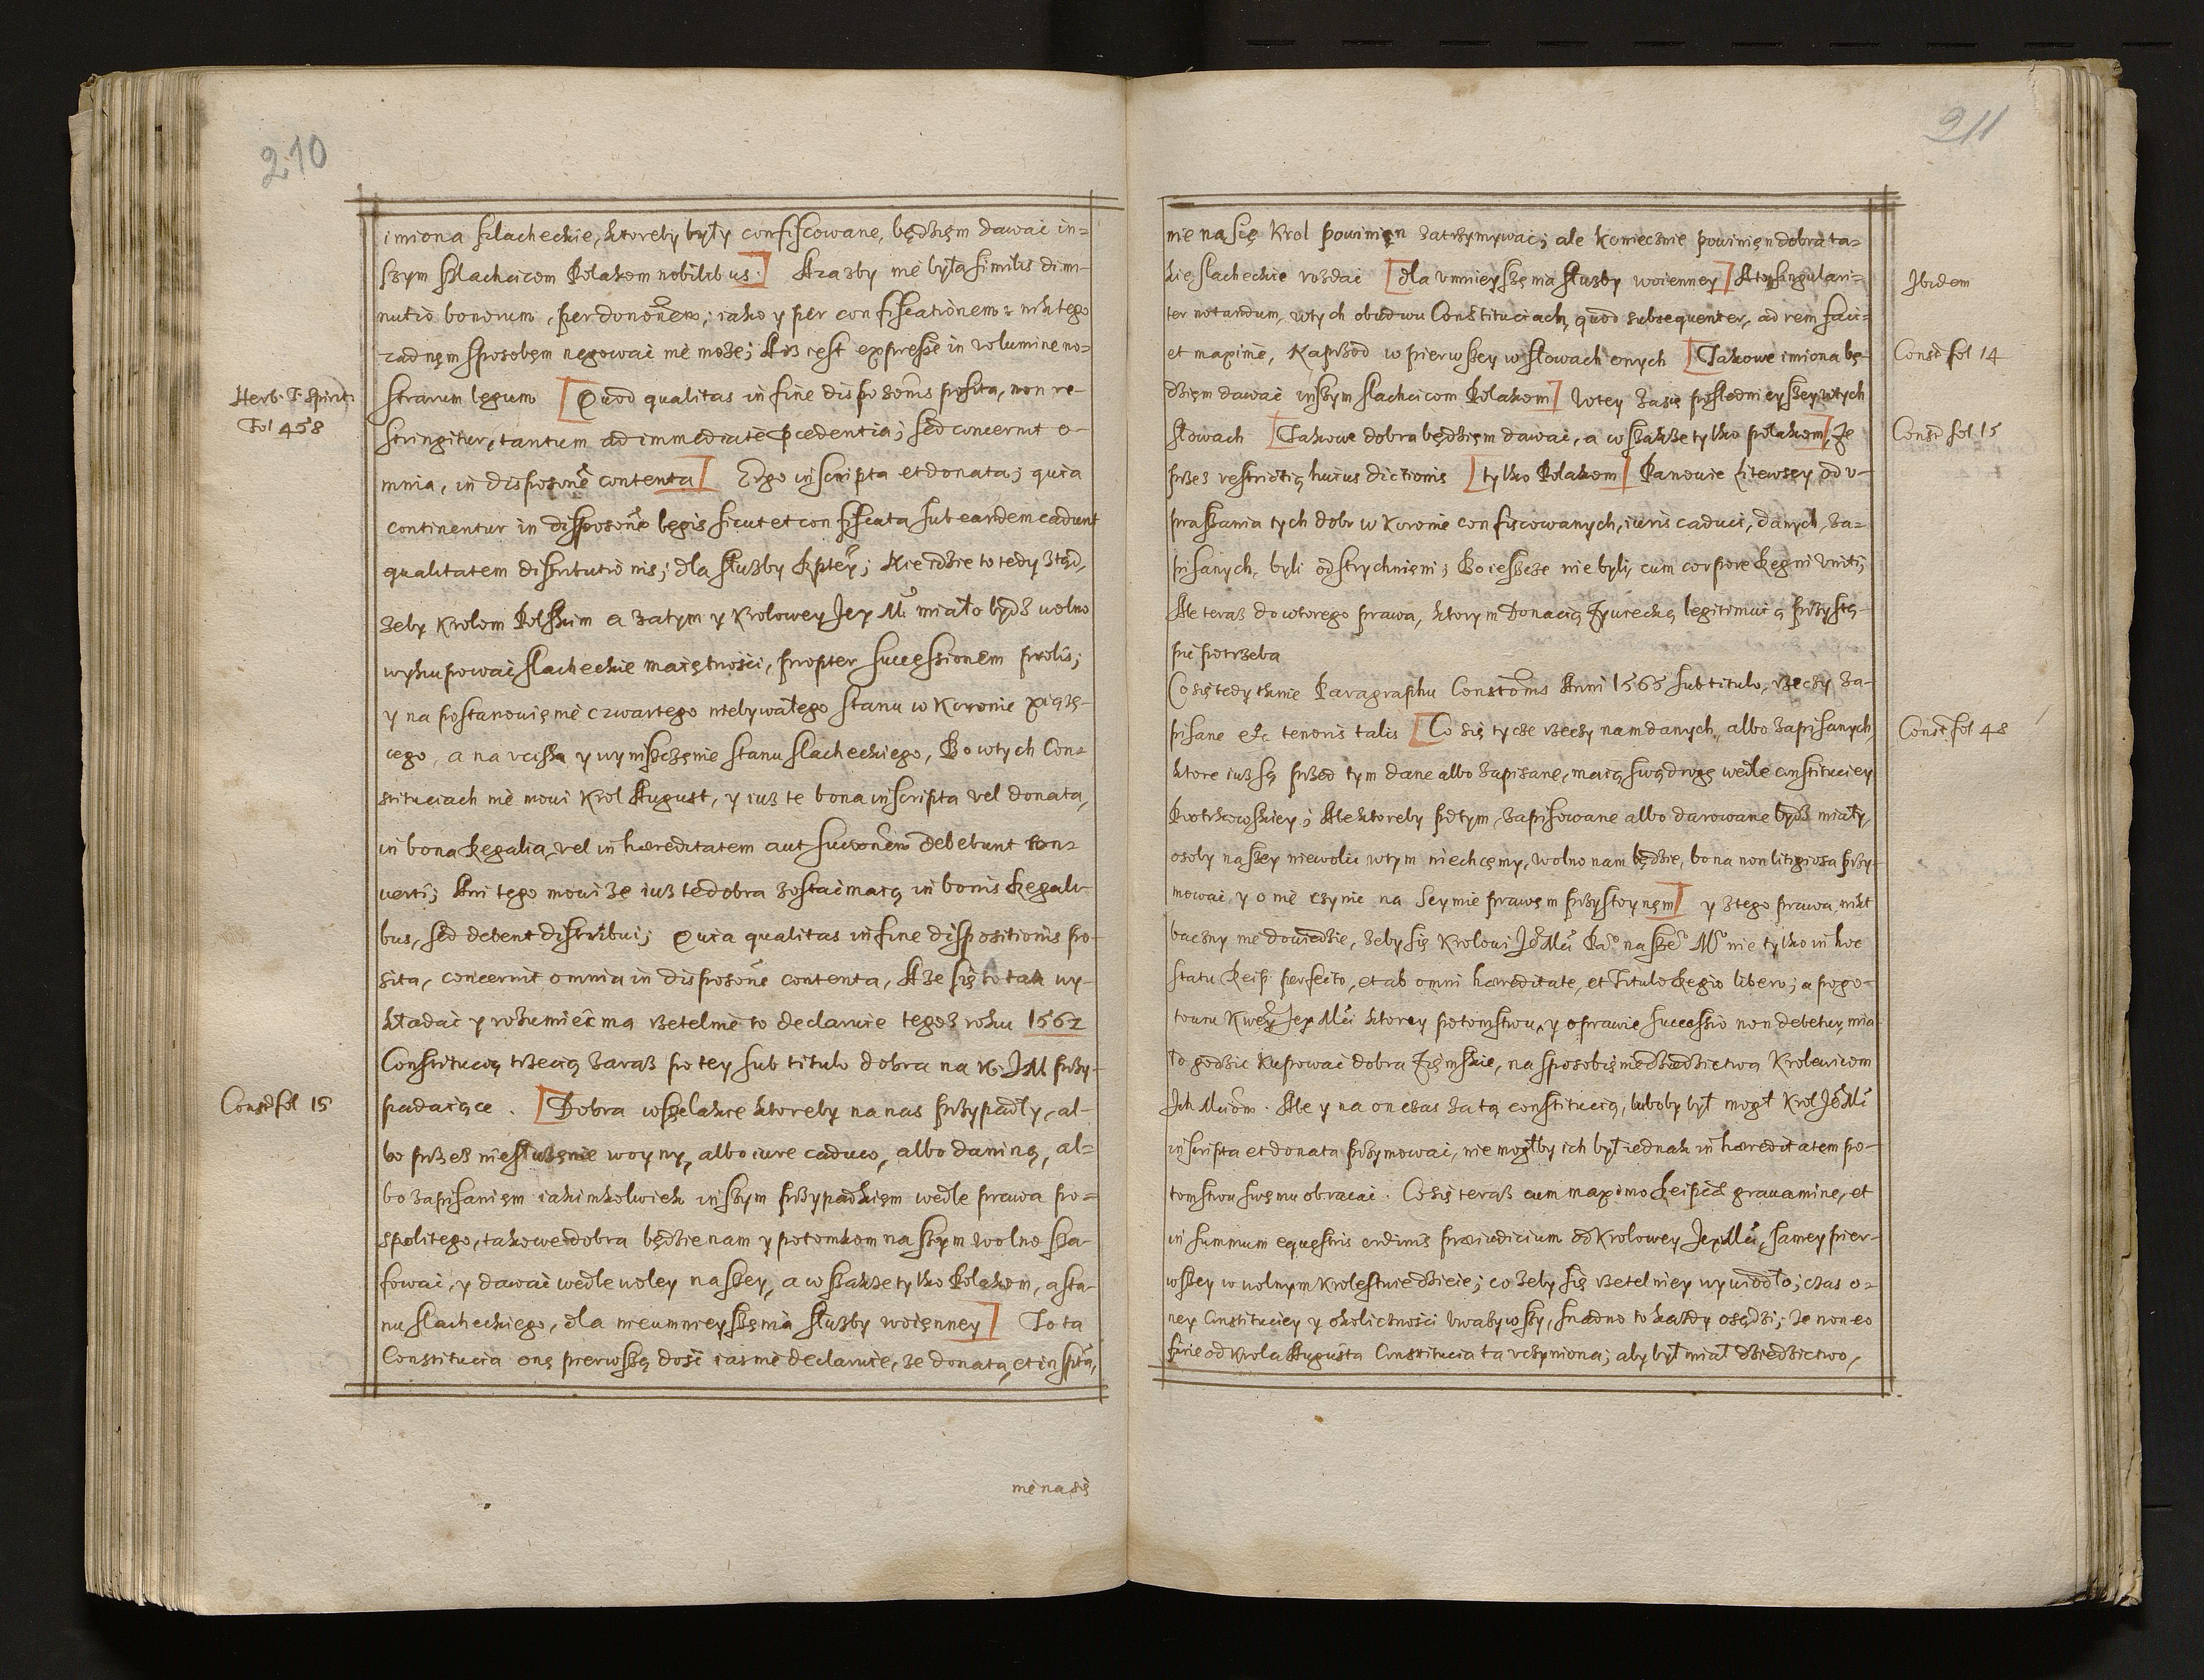 210
imiona szlacheckie, ktoreby były confiscowane, będzięm dawać in=
szym szlachcicom Polakom nobilibus.] Azazby nie była similis dimi=
nutio bonorum, per dononem, iako y per confiscationem: nikt tego
zadnęm sposobęm negować nie może; Aisz iest expresse in volumine no=
Herb. T. Spirit.
Fol 458
strarum legum [Quod qualitas in fine disposonis posita, non re=
stringitur, tantum ad immediate pcedentia; sed concernit o=
mnia, in disposone contenta] Ergo inscripta et donata; quia
continentur in disposone legis sicut et confiscata sub eandem cadunt
qualitatem distributionis; dla służby Rptey; Nie idzie to tedy ztąd,
zeby Krolom Polskim a zatym y Krolowey Jey M miało bydz wolno
wykupować slacheckie maiętności, propter successionem prolis;
y na postanowięnie czwartego niebywałego stanu w Koronie xiązę=
cego, a na ucisk y wyniszczęnie stanu slacheckiego, Bo w tych Con=
stituciach nie mowi Krol August, y iusz te bona inscripta vel donata,
in bona Regalia, vel in hæreditatem aut succonem debebunt con=
verti; Ani tego mowi że iusz te dobra zostać maią in bonis Regali=
bus, sed debent distribui; Quia qualitas in fine dispositionis po=
sita, concernit omnia in disposone contenta, A że się to tak wy=
kładać y rozumieć ma rzetelnie to declaruie tegoż roku 1562
Constitucią trzecią zaraz po tey sub titulo dobra na K. J M przy=
Const fol 15
padaiące. [Dobra wszelakie ktoreby na nas przypadły, al=
bo przez niesłużęnie woyny, albo iure caduco, albo daniną, al=
bo zapisanięm iakimkolwiek inszym przypadkięm wedle prawa po=
spolitego, takowe dobra będzie nam y potomkom naszym wolno sza=
fować, y dawać wedle woley naszey, a wszakże tylko Polakom, a sta=
nu slacheckiego, dla nieumnieyszęnia służby woięnney] To ta
Constitucia onę pierwszą dość iasnie declaruie, że donata, et inspta,
nie na się
211
nie na się Krol powinięn zatrzymywać; ale koniecznie powinięn dobra ta=
Ibidem
kie slacheckie rozdać [dla umnieyszęnia służby woienney] A to singulari=
ter notandum, w tych obudwu Constituciach, quod subsequenter, ad rem faci=
Const fol 14
et maxime, Naprzod w pierwszey w słowach onych [Takowe imiona bę=
dzięm dawać inszym slachcicom Polakom] W tey zasię poslednieyszey w tych
Const fol 15
słowach [Takowe dobra będzięm dawać, a wszakże tylko polakom] Ze
przez restrictią huius dictionis [tylko Polakom] Panowie Litewscy od u=
praszania tych dobr w Koronie confiscowanych, iuris caduci, danych, za=
pisanych, byli odstrychnięni; Bo ieszcze nie byli, cum corpore Regni uniti;
Ale teraz do wtorego prawa, ktorym Donacią Zywiecką legitimuią przystę=
pić potrzeba
Co się tedy tknie Paragraphu Constonis Anni 1565 sub titulo, Rzeczy za=
Const. fol 48
pisane etc tenoris talis [Co się tycze rzeczy nam danych, albo zapisanych,
ktore iusz są przed tym dane albo zapisane, maią swą drogę wedle constituciey
Piotrkowskiey; Ale ktoreby po tym, zapisowane albo darowane bydz miały,
osoby naszey niewolić w tym niechcęmy, wolno nam będzie, bona non litigiosa przy=
mować, y o nie czynić na Seymie prawęm przystoynęm] y z tego prawa, nikt
baczny nie dowiedzie, żeby się Krolowi Jo Mci Pa naszeo Mo nie tylko in hoc
statu Reip. perfecto, et ab omni hæreditate, et Titulo Regio libero; a pogo=
towiu Krwey Jey Mci ktorey potomstwu, y oprawie successio non debetur, mia=
ło godzić kupować dobra Zięmskie, na sposobięnie dziedzictwa Krolewicom
Ich Mciom. Ale y na on czas za tą constitucią, luboby był mogł Krol Jo Mc
inscripta et donata przymować, nie mogłby ich był iednak in hæreditatem po=
tomstwu swęmu obracać. Co się teraz cum maximo Reipcæ gravamine, et
in summum equestris ordinis præiudicium od Krolowey Jey Mci, samey pier=
wszey w wolnym krolestwie dzieie; co żeby się rzetelniey wywiodło; czas o=
ney Constituciey y okoliczności uważywszy, snadno to każdy osądzi; że non eo
fine od Krola Augusta Constitucia ta uczyniona; aby był miał dziedzictwo,